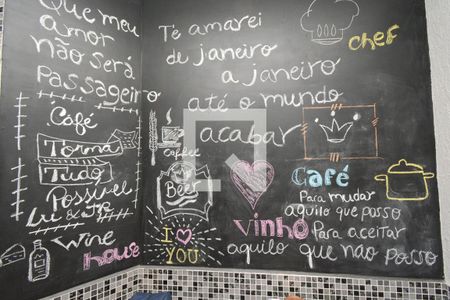 Que meu
amor
não será
Passageiro
Café
Torna
Tudo
Possível
Wine
house
Te amarei
de janeiro
a janeiro
até o mundo
acabar
chef
coffee
Beer
I
YOU
Café
Para mudar
aquilo que posso
vinho Para aceitar
aquilo que não posso